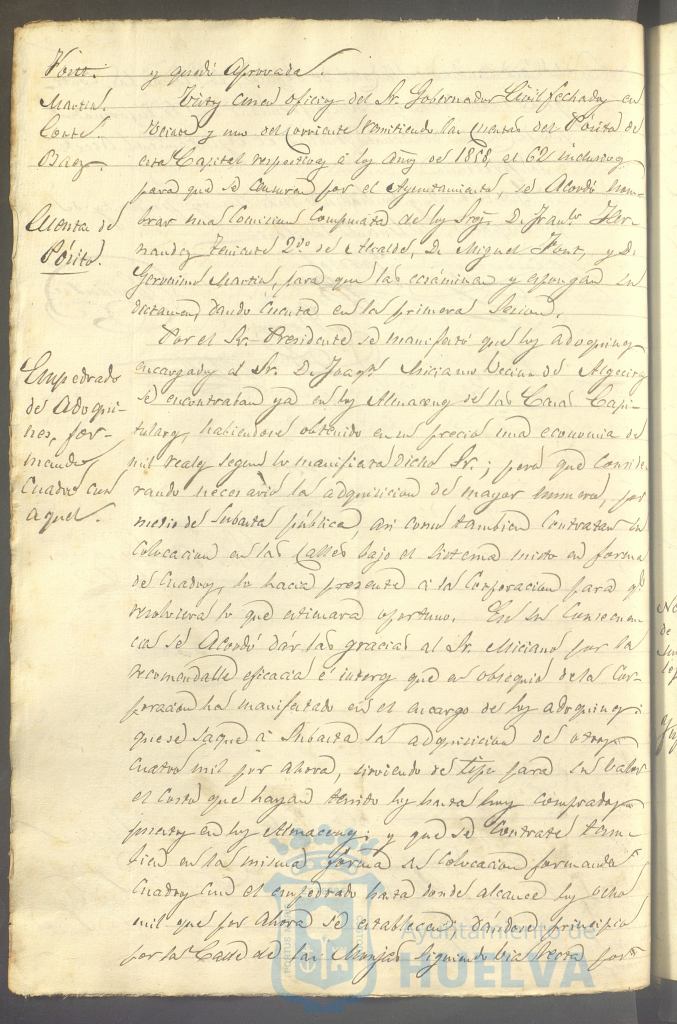 Font.
Martin.
Conte.
Baez.
Cuenta de
Pósito.
Empedrado
de Adoqui-
nes, for-
mando
Cuadros con
aquel.
y quedó Aprovada.
Visto cinco oficios del Sr. Gobernador Civil fechados en
veinte y uno del corriente remitiendo las cuentas del Pósito de
esta Capital respectivas á los años de 1858, al 62 inclusives
para que se censuren por el Ayuntamiento, se Acordó nom-
brar una Comision Compuesta de los Sres. D. Franco. Her-
nandez Teniente 2do. de Alcalde, D. Miguel Font, y D.
Geronimo Martin, para que las ecsáminen y espongan su
dictamen, dando cuenta en la primera Sesion.
Por el Sr. Presidente se manifestó que los adoquines
encargados al Sr. D. Joaqn. Miciano Vecino de Algeciras
se encontraban ya en los Almacenes de las Casas Capi-
tulares, habiendose obtenido en su precio una economia de
mil reales segun lo manifiesta dicho Sr.; pero que conside-
rando necesario la adquisicion de mayor numero, por
medio de Subasta pública, asi como tambien Contratar su
Colocacion en las Calles bajo el sistema misto en forma
de Cuadros, lo hacia presente á la Corporacion para qe.
resolviera lo que estimara oportuno. En su Consecuen-
cia se Acordó dár las gracias al Sr. Miciano por la
recomendable eficacia é interes que en obsequio de la Cor-
poracion ha manifestado en el encargo de los adoquines:
que se saque á Subasta la adquisicion de otros
cuatro mil por ahora, sirviendo de tipo para su valor
el costo que hayan tenido los hasta hoy comprados
puestos en los Almacenes; y que se contrate tam-
bien en la misma forma su colocacion formando
Cuadros con el empedrado hasta donde alcance los ocho
mil que por ahora se establecen; dandose principio
por la Calle de las Monjas siguiendo via recta por
Ayuntamiento de
HUELVA